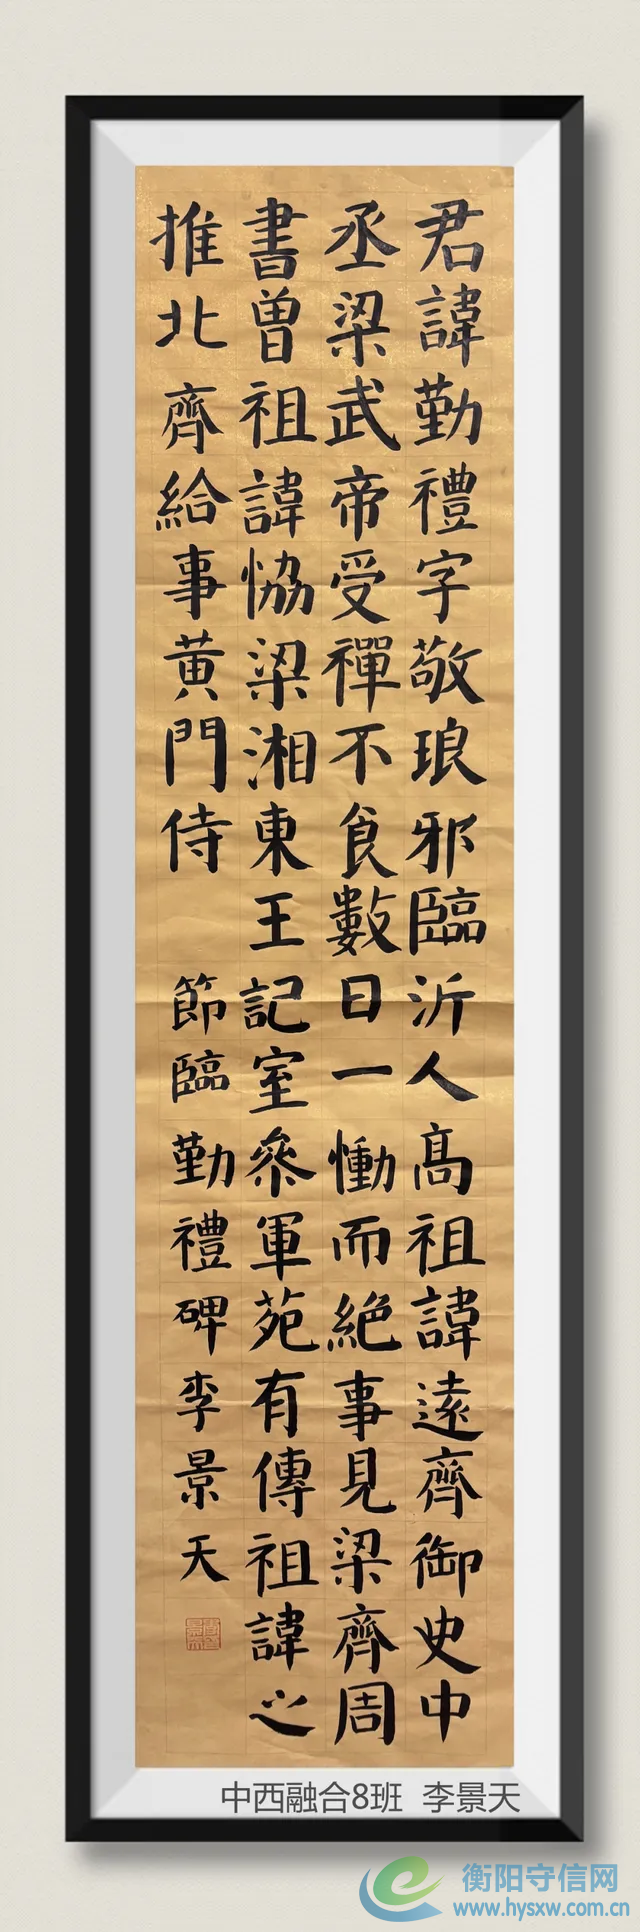 君諱勤禮字敬琅邪臨沂人高祖諱遠齊御史中
丞梁武帝受禪不食數日一慟而絕事見梁齊周
書曾祖諱恊梁湘東王記室叅軍苑有傳祖諱之
推北齊給事黄門侍
節臨勤禮碑李景天
中西融合8班 李景天
衡阳守信网
www.hysxw.com.cn